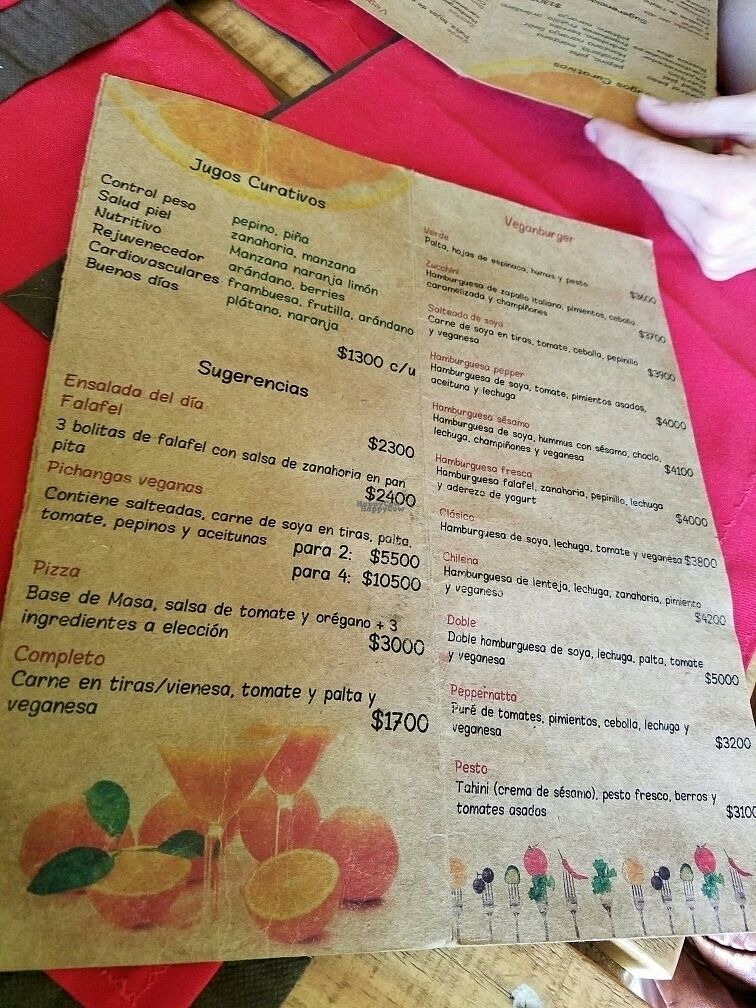 Jugos Curativos
Control peso
pepino, piña
Salud piel
zanahoria, manzana
Nutritivo
Manzana naranja limón
Rejuvenecedor
arándano, berries
Cardiovasculares
frambuesa, frutilla, arándano
Buenos días
plátano, naranja
$1300 c/u
Sugerencias
Ensalada del día
$2300
Falafel
3 bolitas de falafel con salsa de zanahoria en pan
pita
$2400
Pichangas veganas
Contiene salteadas, carne de soya en tiras, palta,
tomate, pepinos y aceitunas
para 2: $5500
para 4: $10500
Pizza
Base de Masa, salsa de tomate y orégano + 3
ingredientes a elección
$3000
Completo
Carne en tiras/vienesa, tomate y palta y
veganesa
$1700
Veganburger
Verde
Palta, hojas de espinaca, humus y pesto
$3600
Zucchini
Hamburguesa de zapallo italiano, pimientos, cebolla
caramelizada y champiñones
$3700
Salteado de soya
Carne de soya en tiras, tomate, cebolla, pepinillo
y veganesa
$3900
Hamburguesa pepper
Hamburguesa de soya, tomate, pimientos asados,
aceituna y lechuga
$4000
Hamburguesa sésamo
Hamburguesa de soya, hummus con sésamo, choclo,
lechuga, champiñones y veganesa
$4100
Hamburguesa fresca
Hamburguesa falafel, zanahoria, pepinillo, lechuga
y aderezo de yogurt
$4000
Clásico
Hamburguesa de soya, lechuga, tomate y veganesa $3800
Chilena
Hamburguesa de lenteja, lechuga, zanahoria, pimiento
y veganesa
$4200
Doble
Doble hamburguesa de soya, lechuga, palta, tomate
y veganesa
$5000
Peppernatta
Puré de tomates, pimientos, cebolla, lechuga y
veganesa
$3200
Pesto
Tahini (crema de sésamo), pesto fresco, berros y
tomates asados
$3100
HappyCow
Jugos Curativos